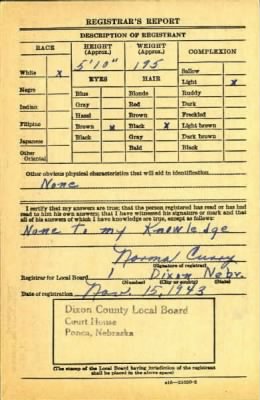 REGISTRAR'S REPORT
DESCRIPTION OF REGISTRANT
RACE HEIGHT (Approx.) WEIGHT (Approx.) COMPLEXION
5'10" 195 Sallow
White x EYES HAIR Light x
Negro Blue Blonde Ruddy
Indian Gray Red Dark
Hazel Brown Freckled
Filipino Brown x Black x Light brown
Japanese Black Gray Dark brown
Other Oriental Bald Black
Other obvious physical characteristics that will aid in identification
None
I certify that my answers are true; that the person registered has read or has had
read to him his own answers; that I have witnessed his signature or mark and that
all of his answers of which I have knowledge are true, except as follows:
None to my Knowledge
Norma Curry
(Signature of registrar)
Registrar for Local Board 1 Dixon Nebr.
(Number) (City or county) (State)
Date of registration Nov. 15, 1943
Dixon County Local Board
Court House
Ponca, Nebraska
(The stamp of the Local Board having jurisdiction of the registrant
shall be placed in the above space)